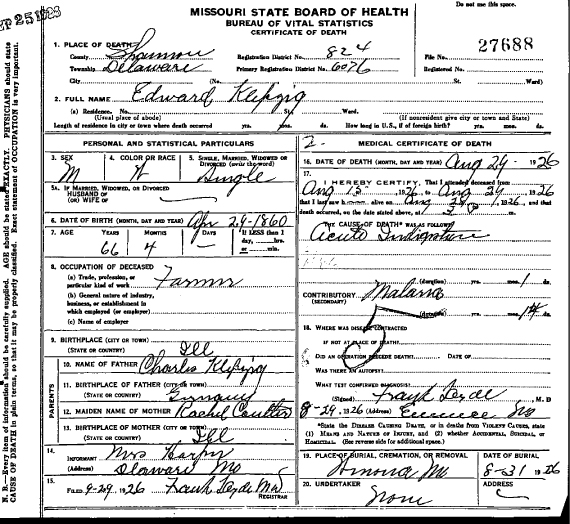 Do not use this space.
SEP 25 1926
MISSOURI STATE BOARD OF HEALTH
BUREAU OF VITAL STATISTICS
CERTIFICATE OF DEATH
1. PLACE OF DEATH
County Shannon Registration District No. 824 File No. 27688
Township Delaware Primary Registration District No. 6076 Registered No.
City (No. St. Ward)
2. FULL NAME Edward Klepzig
(a) Residence. No. St. Ward.
(Usual place of abode) (If nonresident give city or town and State)
Length of residence in city or town where death occurred yrs. mos. ds. How long in U.S., if of foreign birth? yrs. mos. ds.
PERSONAL AND STATISTICAL PARTICULARS
3. SEX M
4. COLOR OR RACE W
5. SINGLE, MARRIED, WIDOWED OR DIVORCED (write the word) Single
5A. IF MARRIED, WIDOWED, OR DIVORCED
HUSBAND OF
(OR) WIFE OF
6. DATE OF BIRTH (MONTH, DAY AND YEAR) Apr 29-1860
7. AGE YEARS MONTHS DAYS If LESS than 1 day, hrs. or min.
66 4 —
8. OCCUPATION OF DECEASED
(a) Trade, profession, or particular kind of work Farmer
(b) General nature of industry, business, or establishment in which employed (or employer)
(c) Name of employer
9. BIRTHPLACE (CITY OR TOWN)
(STATE OR COUNTRY) Ill
PARENTS
10. NAME OF FATHER Charles Klepzig
11. BIRTHPLACE OF FATHER (CITY OR TOWN)
(STATE OR COUNTRY) Germany
12. MAIDEN NAME OF MOTHER Rachel Coulter
13. BIRTHPLACE OF MOTHER (CITY OR TOWN)
(STATE OR COUNTRY) Ill
14. INFORMANT Mrs
(Address) Delaware Mo
15. FILED 9-20 1926 Frank Hyde MD
REGISTRAR
2. MEDICAL CERTIFICATE OF DEATH
16. DATE OF DEATH (MONTH, DAY AND YEAR) Aug 29 - 1926
17. I HEREBY CERTIFY, That I attended deceased from
Aug 15, 1926, to Aug 29, 1926
that I last saw h alive on Aug 29, 1926, and that
death occurred, on the date stated above, at 3 P m.
THE CAUSE OF DEATH* WAS AS FOLLOWS:
Acute Indigestion
(duration) yrs. mos. 1 ds.
CONTRIBUTORY Malaria
(SECONDARY)
(duration) yrs. mos. 14 ds.
18. WHERE WAS DISEASE CONTRACTED
IF NOT AT PLACE OF DEATH?
DID AN OPERATION PRECEDE DEATH? DATE OF
WAS THERE AN AUTOPSY?
WHAT TEST CONFIRMED DIAGNOSIS?
(Signed) Frank Hyde, M.D.
8-29, 1926 (Address) Eminence Mo
*State the DISEASE CAUSING DEATH, or in deaths from VIOLENT CAUSES, state
(1) MEANS AND NATURE OF INJURY, and (2) whether ACCIDENTAL, SUICIDAL, or
HOMICIDAL. (See reverse side for additional space.)
19. PLACE OF BURIAL, CREMATION, OR REMOVAL DATE OF BURIAL
Mo 8-31 1926
20. UNDERTAKER ADDRESS
None
N. B.—Every item of information should be carefully supplied. AGE should be stated EXACTLY. PHYSICIANS should state
CAUSE OF DEATH in plain terms, so that it may be properly classified. Exact statement of OCCUPATION is very important.